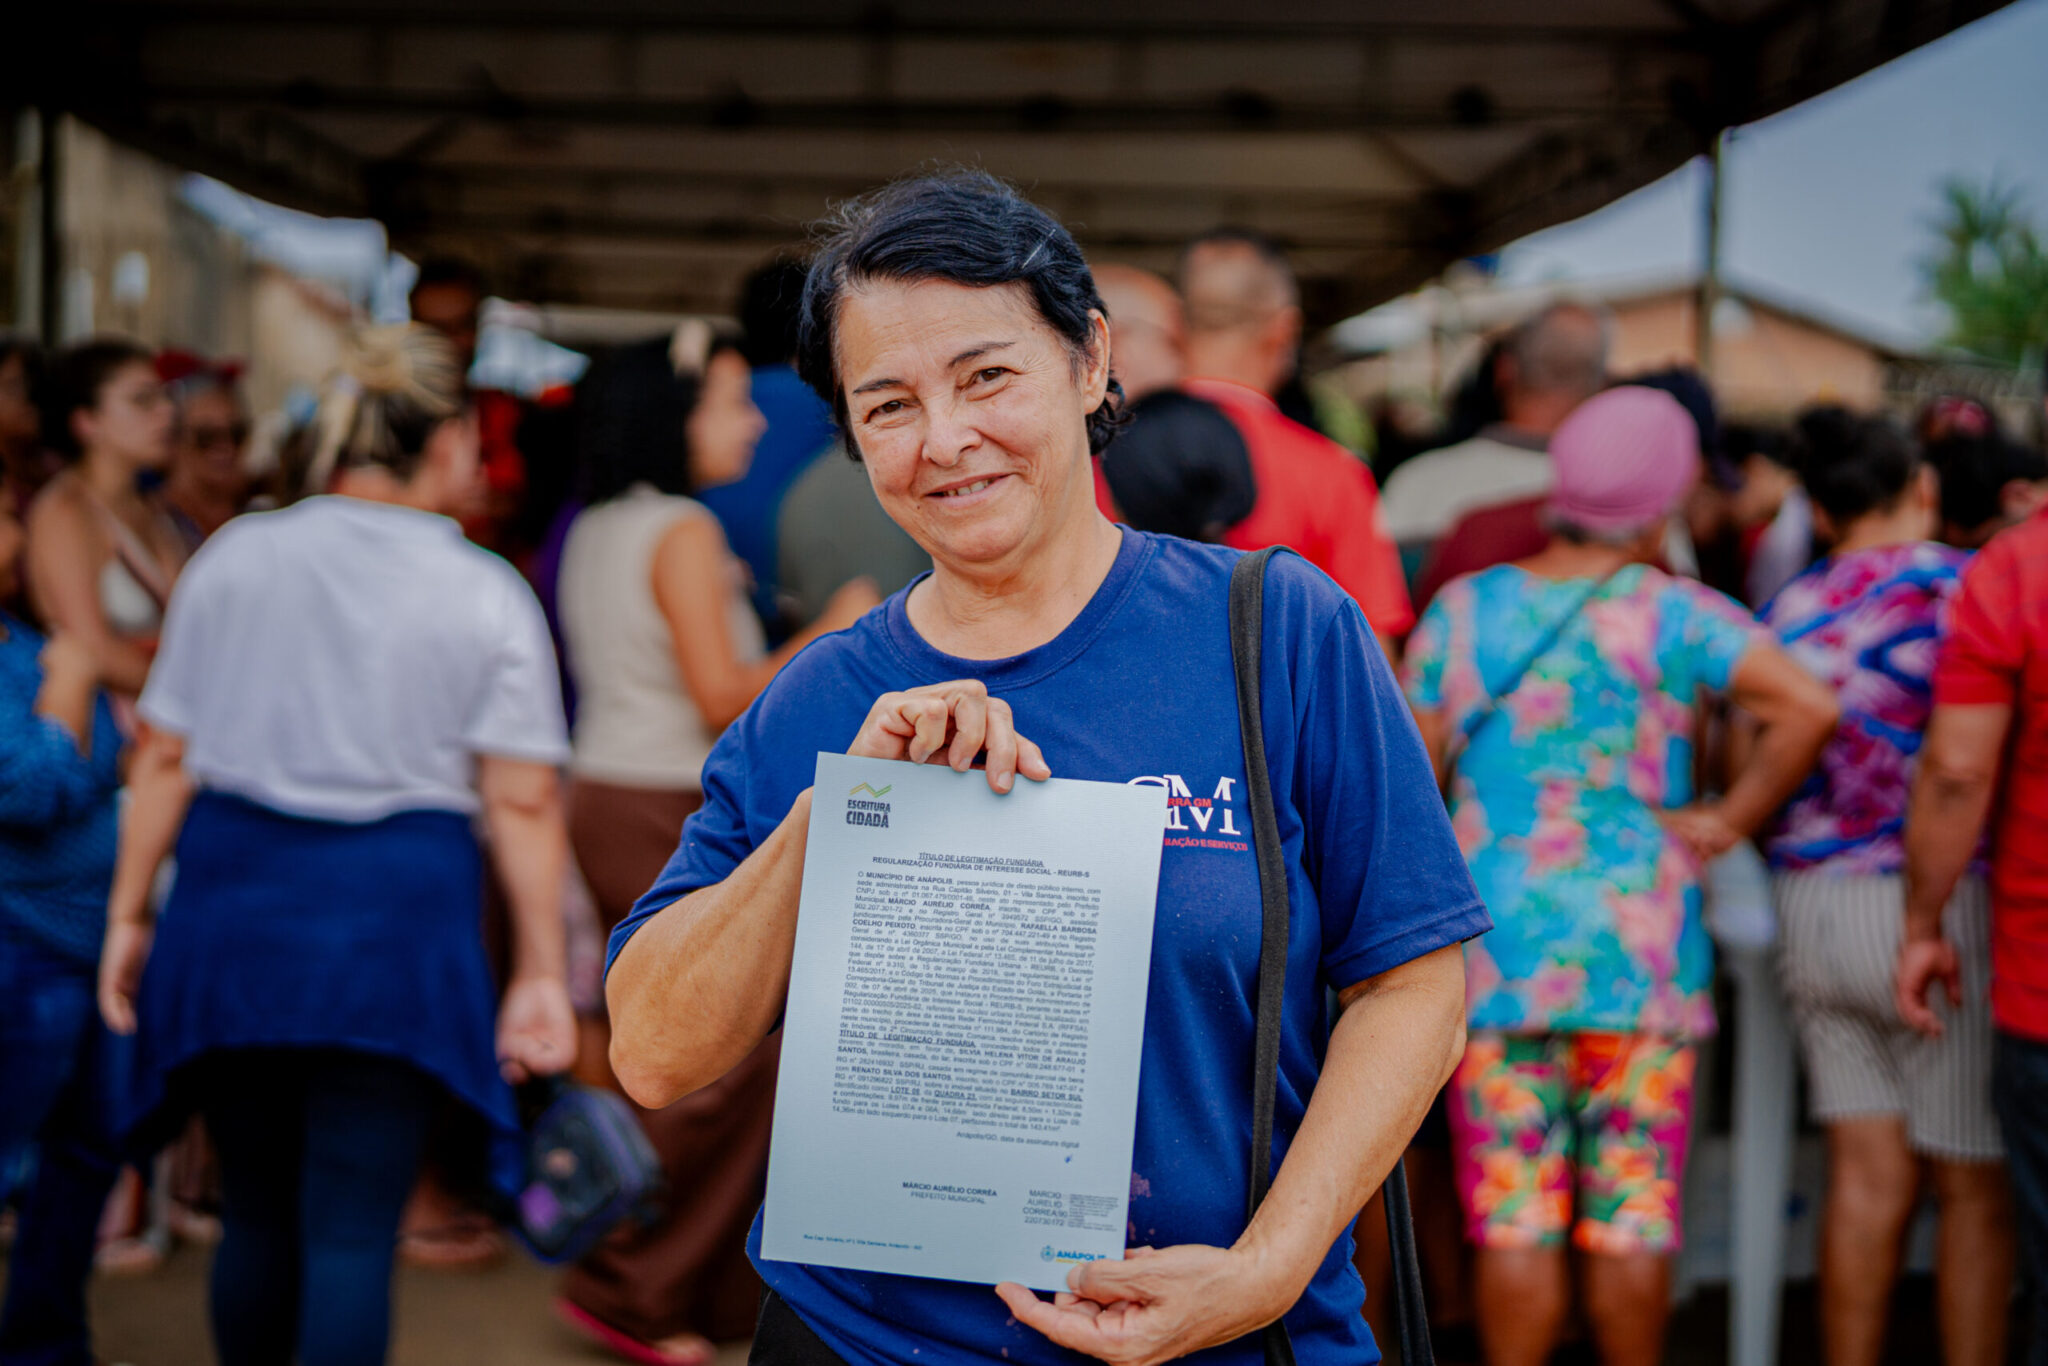 ESCRITURA
CIDADÃ
TÍTULO DE LEGITIMAÇÃO FUNDIÁRIA
REGULARIZAÇÃO FUNDIÁRIA DE INTERESSE SOCIAL - REURB-S
O MUNICÍPIO DE ANÁPOLIS, pessoa jurídica de direito público interno, com
sede administrativa na Rua Capitão Silvério, 01 – Vila Santana, inscrito no
CNPJ sob o nº 01.067.479/0001-46, neste ato representado pelo Prefeito
Municipal, MÁRCIO AURÉLIO CORRÊA, inscrito no CPF sob o nº
902.207.301-72 e no Registro Geral nº 3949572 SSP/GO, assistido
juridicamente pela Procuradora-Geral do Município, RAFAELLA BARBOSA
COELHO PEIXOTO, inscrita no CPF sob o nº 704.447.221-49 e no Registro
Geral de nº 4360377 SSP/GO, no uso de suas atribuições legais,
considerando a Lei Orgânica Municipal e pela Lei Complementar Municipal nº
144, de 17 de abril de 2007, a Lei Federal nº 13.465, de 11 de julho de 2017,
que dispõe sobre a Regularização Fundiária Urbana - REURB, o Decreto
Federal nº 9.310, de 15 de março de 2018, que regulamenta a Lei nº
13.465/2017, e o Código de Normas e Procedimentos do Foro Extrajudicial da
Corregedoria-Geral do Tribunal de Justiça do Estado de Goiás, a Portaria nº
002, de 07 de abril de 2025, que Instaura o Procedimento Administrativo de
Regularização Fundiária de Interesse Social - REURB-S, perante os autos nº
01102.00000505/2025-82, referente ao núcleo urbano informal, localizado em
parte do trecho de área da extinta Rede Ferroviária Federal S.A. (RFFSA),
neste município, procedente da matrícula nº 111.984, do Cartório de Registro
de Imóveis da 2ª Circunscrição desta Comarca, resolve expedir o presente
TÍTULO DE LEGITIMAÇÃO FUNDIÁRIA, concedendo todos os direitos e
deveres de moradia, em favor de, SILVIA HELENA VITOR DE ARAUJO
SANTOS, brasileira, casada, do lar, inscrita sob o CPF nº 009.248.677-01 e
RG nº 282416932 SSP/RJ, casada em regime de comunhão parcial de bens
com RENATO SILVA DOS SANTOS, inscrito, sob o CPF nº 005.769.147-97 e
RG nº 091296822 SSP/RJ, sobre o imóvel situado no BAIRRO SETOR SUL
identificado como LOTE 08, da QUADRA 23, com as seguintes características
e confrontações: 9,97m de frente para a Avenida Federal; 8,50m + 1,32m de
fundo para os Lotes 07A e 08A; 14,68m lado direito para para o Lote 09;
14,36m do lado esquerdo para o Lote 07, perfazendo o total de 143,41m².
Anápolis/GO, data da assinatura digital
MÁRCIO AURÉLIO CORRÊA
PREFEITO MUNICIPAL
MARCIO
AURELIO
CORREA:90
220730172
Rua Cap. Silvério, nº 1, Vila Santana, Anápolis - GO
ANÁPOLIS
GM
RRA GM
RAÇÃO E SERVIÇOS